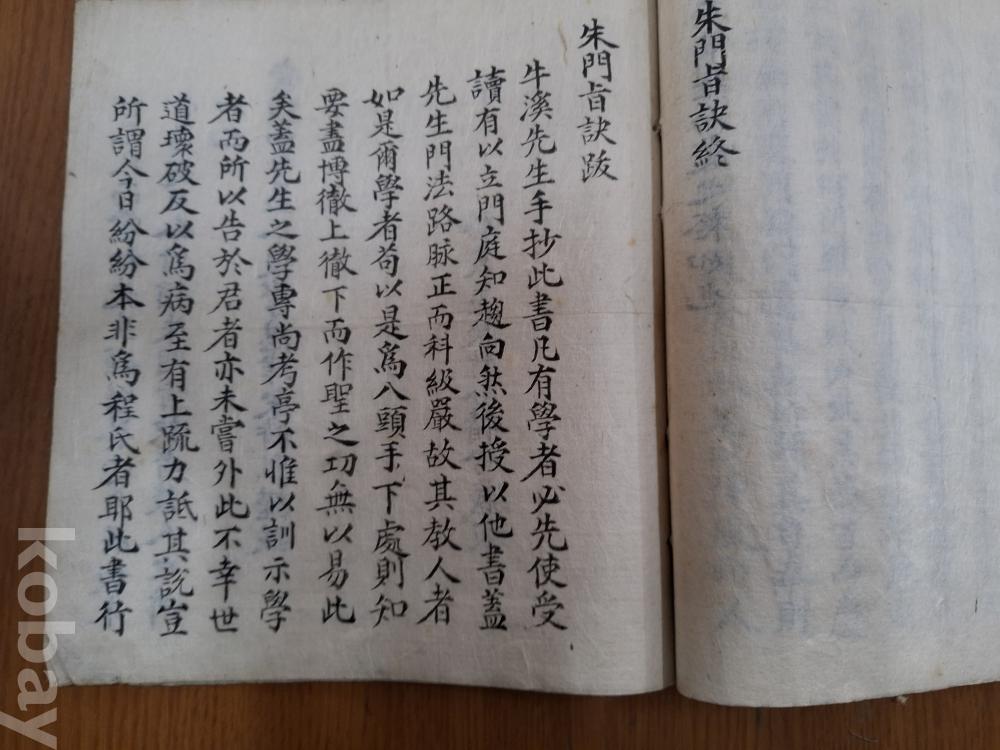 朱門旨訣終
朱門旨訣跋
牛溪先生手抄此書凡有學者必先使受
讀有以立門庭知趨向然後授以他書蓋
先生門法路脉正而科級嚴故其教人者
如是爾學者苟以是爲入頭手下處則知
要盡博徹上徹下而作聖之功無以易此
矣盖先生之學專尚考亭不惟以訓示學
者而所以告於君者亦未嘗外此不幸世
道壞破反以爲病至有上疏力詆其說豈
所謂今日紛紛本非爲程氏者耶此書行
kobay